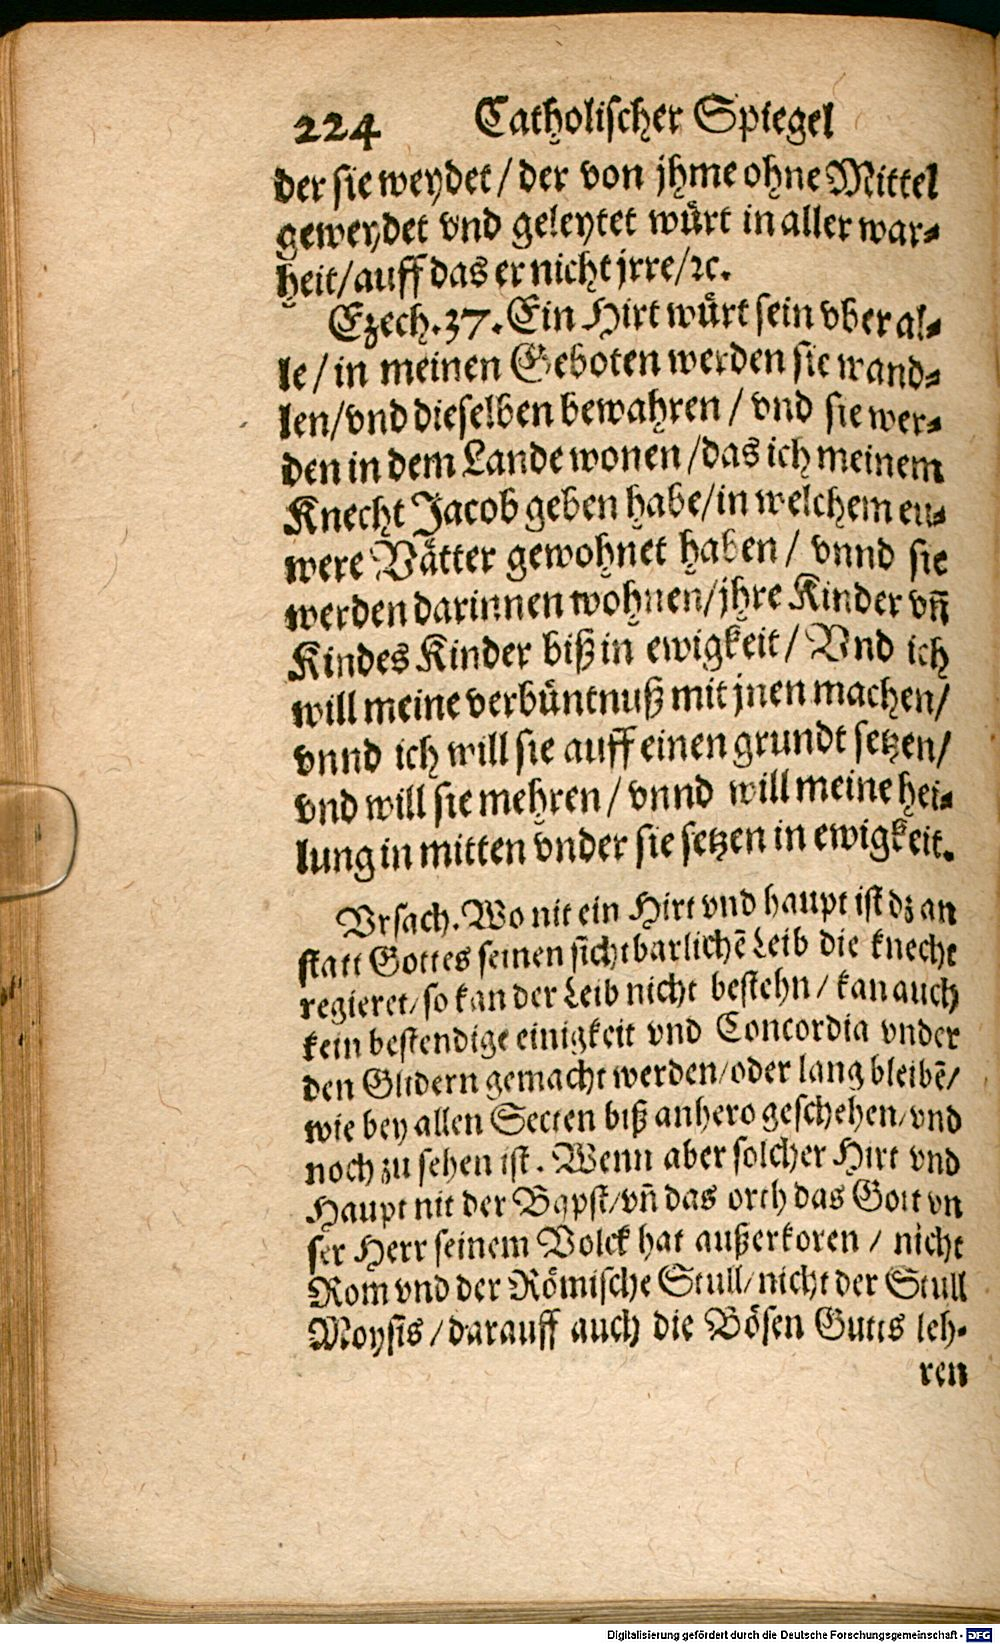 224 Catholischer Spiegel
der sie weydet / der von jhme ohne Mittel
geweydet vnd geleytet wuͤrt in aller war⸗
heit / auff das er nicht jrre / ꝛc.
Ezech. 37. Ein Hirt wuͤrt sein vber al⸗
le / in meinen Geboten werden sie wand⸗
len / vnd dieselben bewahren / vnd sie wer⸗
den in dem Lande wonen / das ich meinem
Knecht Jacob geben habe / in welchem eu⸗
were Vaͤtter gewohnet haben / vnnd sie
werden darinnen wohnen / jhre Kinder vn̄
Kindes Kinder biß in ewigkeit / Vnd ich
will meine verbuͤntnuß mit jnen machen /
vnnd ich will sie auff einen grundt setzen /
vnd will sie mehren / vnnd will meine hei⸗
lung in mitten vnder sie setzen in ewigkeit.
Vrsach. Wo nit ein Hirt vnd haupt ist dz an
statt Gottes seinen sichtbarlichē Leib die knecht
regieret / so kan der Leib nicht bestehn / kan auch
kein bestendige einigkeit vnd Concordia vnder
den Glidern gemacht werden / oder lang bleibē /
wie bey allen Secten biß anhero geschehen / vnd
noch zu sehen ist. Wenn aber solcher Hirt vnd
Haupt nit der Bapst / vn̄ das orth das Gott vn
ser Herr seinem Volck hat außerkoren / nicht
Rom vnd der Roͤmische Stull / nicht der Stull
Moysis / darauff auch die Boͤsen Gutts leh⸗
ren
Digitalisierung gefördert durch die Deutsche Forschungsgemeinschaft - DFG